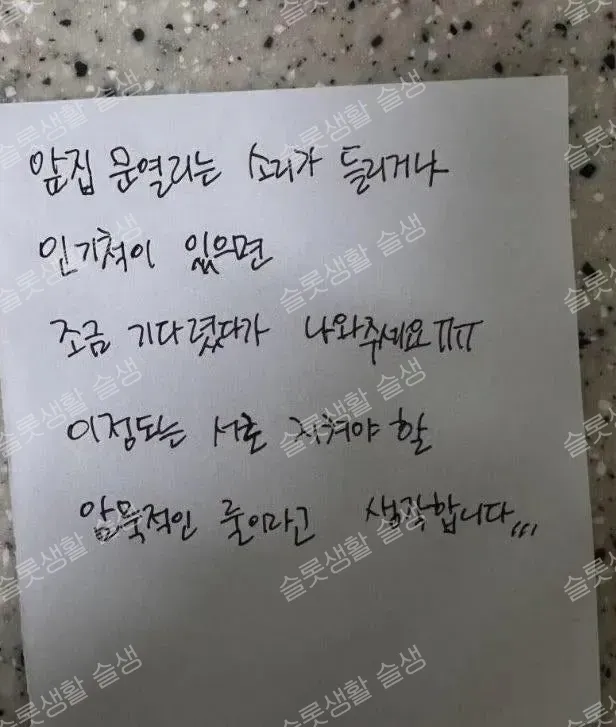 앞집 문열리는 소리가 들리거나
인기척이 있으면
조금 기다렸다가 나와주세요ㅠㅠ
이정도는 서로 지켜야 할
암묵적인 룰이라고 생각합니다,,,
슬롯생활 슬생